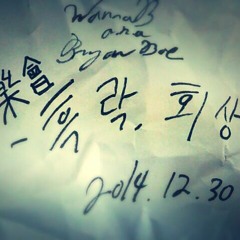 WannaB
a.k.a
Bryan Doe
樂會
- 흑락, 회상
2014.12.30